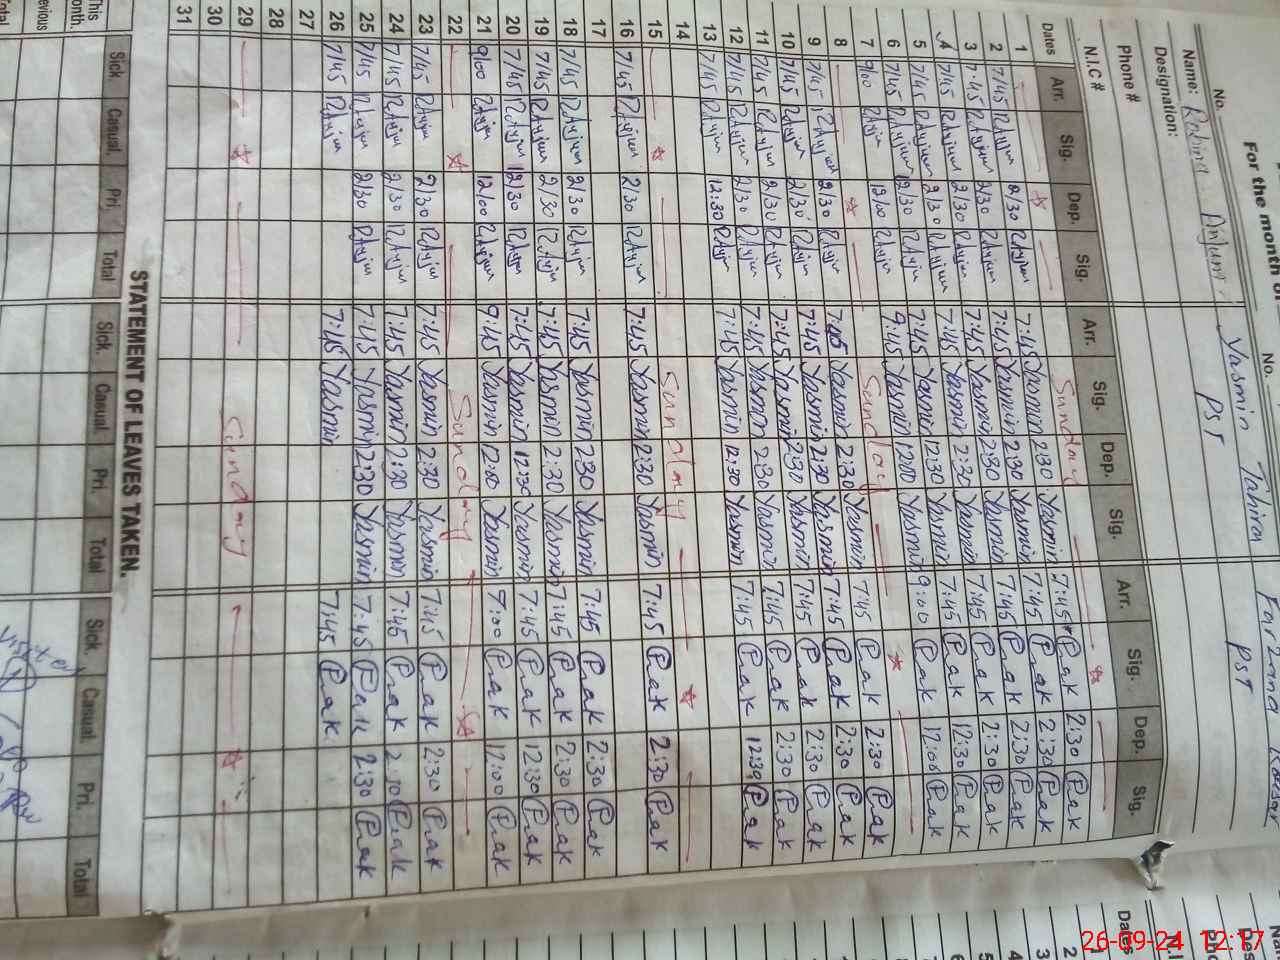 For the month of
No. No.
Name: Robina Anjum Yasmin Tahira Farzana Kausar
Designation: PST PST
Phone #
N.I.C #
Dates Arr. Sig. Dep. Sig. Arr. Sig. Dep. Sig. Arr. Sig. Dep. Sig.
1 Sunday
2 7/45 RAnjum 2/30 RAnjum 7:45 Yasmin 2:30 Yasmin 7:45 Pak 2:30 Pak
3 7:45 RAnjum 2/30 RAnjum 7:45 Yasmin 2:30 Yasmin 7:45 Pak 2:30 Pak
4 7/45 RAnjum 2/30 RAnjum 7:45 Yasmin 2:30 Yasmin 7:45 Pak 2:30 Pak
5 7/45 RAnjum 2/30 RAnjum 7:45 Yasmin 2:30 Yasmin 7:45 Pak 2:30 Pak
6 7/45 RAnjum 12/30 RAnjum 7:45 Yasmin 12:30 Yasmin 7:45 Pak 12:30 Pak
7 9/00 RAnjum 12/00 RAnjum 9:45 Yasmin 12:00 Yasmin 9:00 Pak 12:00 Pak
8 Sunday
9 7/45 RAnjum 2/30 RAnjum 7:45 Yasmin 2:30 Yasmin 7:45 Pak 2:30 Pak
10 7/45 RAnjum 2/30 RAnjum 7:45 Yasmin 2:30 Yasmin 7:45 Pak 2:30 Pak
11 7/45 RAnjum 2/30 RAnjum 7:45 Yasmin 2:30 Yasmin 7:45 Pak 2:30 Pak
12 7/45 RAnjum 2/30 RAnjum 7:45 Yasmin 2:30 Yasmin 7:45 Pak 2:30 Pak
13 7/45 RAnjum 12:30 RAnjum 7:45 Yasmin 12:30 Yasmin 7:45 Pak 12:30 Pak
14
15 Sunday
16 7/45 RAnjum 2/30 RAnjum 7:45 Yasmin 2:30 Yasmin 7:45 Pak 2:30 Pak
17
18 7/45 RAnjum 2/30 RAnjum 7:45 Yasmin 2:30 Yasmin 7:45 Pak 2:30 Pak
19 7/45 RAnjum 2/30 RAnjum 7:45 Yasmin 2:30 Yasmin 7:45 Pak 2:30 Pak
20 7/45 RAnjum 12/30 RAnjum 7:45 Yasmin 12:30 Yasmin 7:45 Pak 12:30 Pak
21 9/00 RAnjum 12/00 RAnjum 9:45 Yasmin 12:00 Yasmin 9:00 Pak 12:00 Pak
22 Sunday
23 7/45 RAnjum 2/30 RAnjum 7:45 Yasmin 2:30 Yasmin 7:45 Pak 2:30 Pak
24 7/45 RAnjum 2/30 RAnjum 7:45 Yasmin 2:30 Yasmin 7:45 Pak 2:30 Pak
25 7/45 RAnjum 2/30 RAnjum 7:45 Yasmin 2:30 Yasmin 7:45 Pak 2:30 Pak
26 7/45 RAnjum 7:45 Yasmin 7:45 Pak
27
28
29 Sunday
30
31
STATEMENT OF LEAVES TAKEN.
Sick. Casual. Pri. Total Sick. Casual. Pri. Total Sick. Casual. Pri. Total
This
month.
Dates
1
2
3
4
5
6
26-09-24 12:17